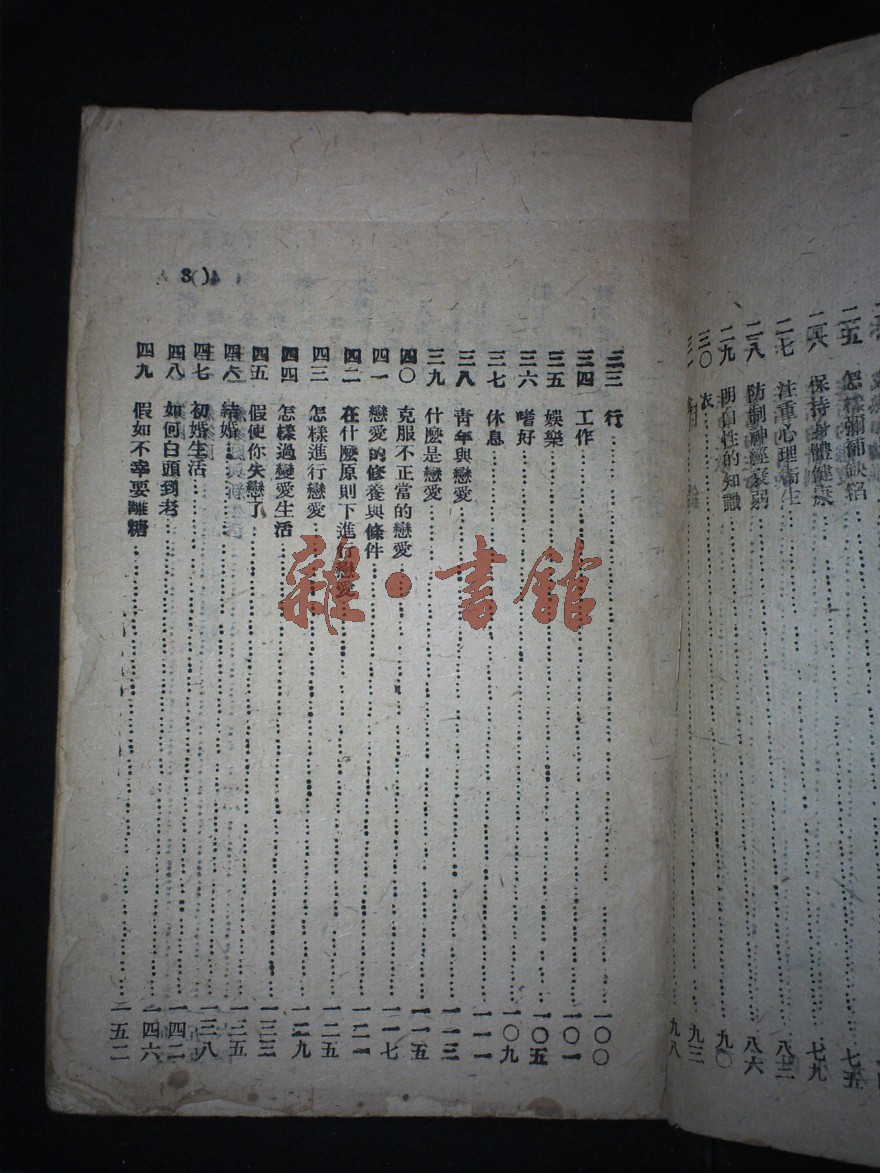 二五 怎樣彌補缺陷……七五
二六 保持身體健康……七九
二七 注重心理衛生……八三
二八 防制神經衰弱……八六
二九 明白性的知識……九〇
三〇 衣……九三
九八
三三 行……一〇〇
三四 工作……一〇一
三五 娛樂……一〇五
三六 嗜好……一〇九
三七 休息……一一一
三八 青年與戀愛……一一三
三九 什麼是戀愛……一一五
四〇 克服不正當的戀愛……一一七
四一 戀愛的修養與條件……一二一
四二 在什麼原則下進行戀愛……一二五
四三 怎樣進行戀愛……一二九
四四 怎樣過變愛生活……一三三
四五 假使你失戀了……一三五
四六 結婚……一三八
四七 初婚生活……一四二
四八 如何白頭到老……一四六
四九 假如不幸要離糖……一五二
雜·書館